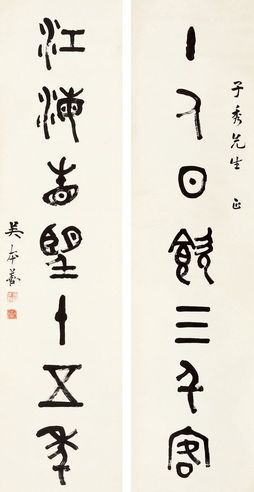 子秀先生 正
日飲三千客
江海望十五年
吳本善